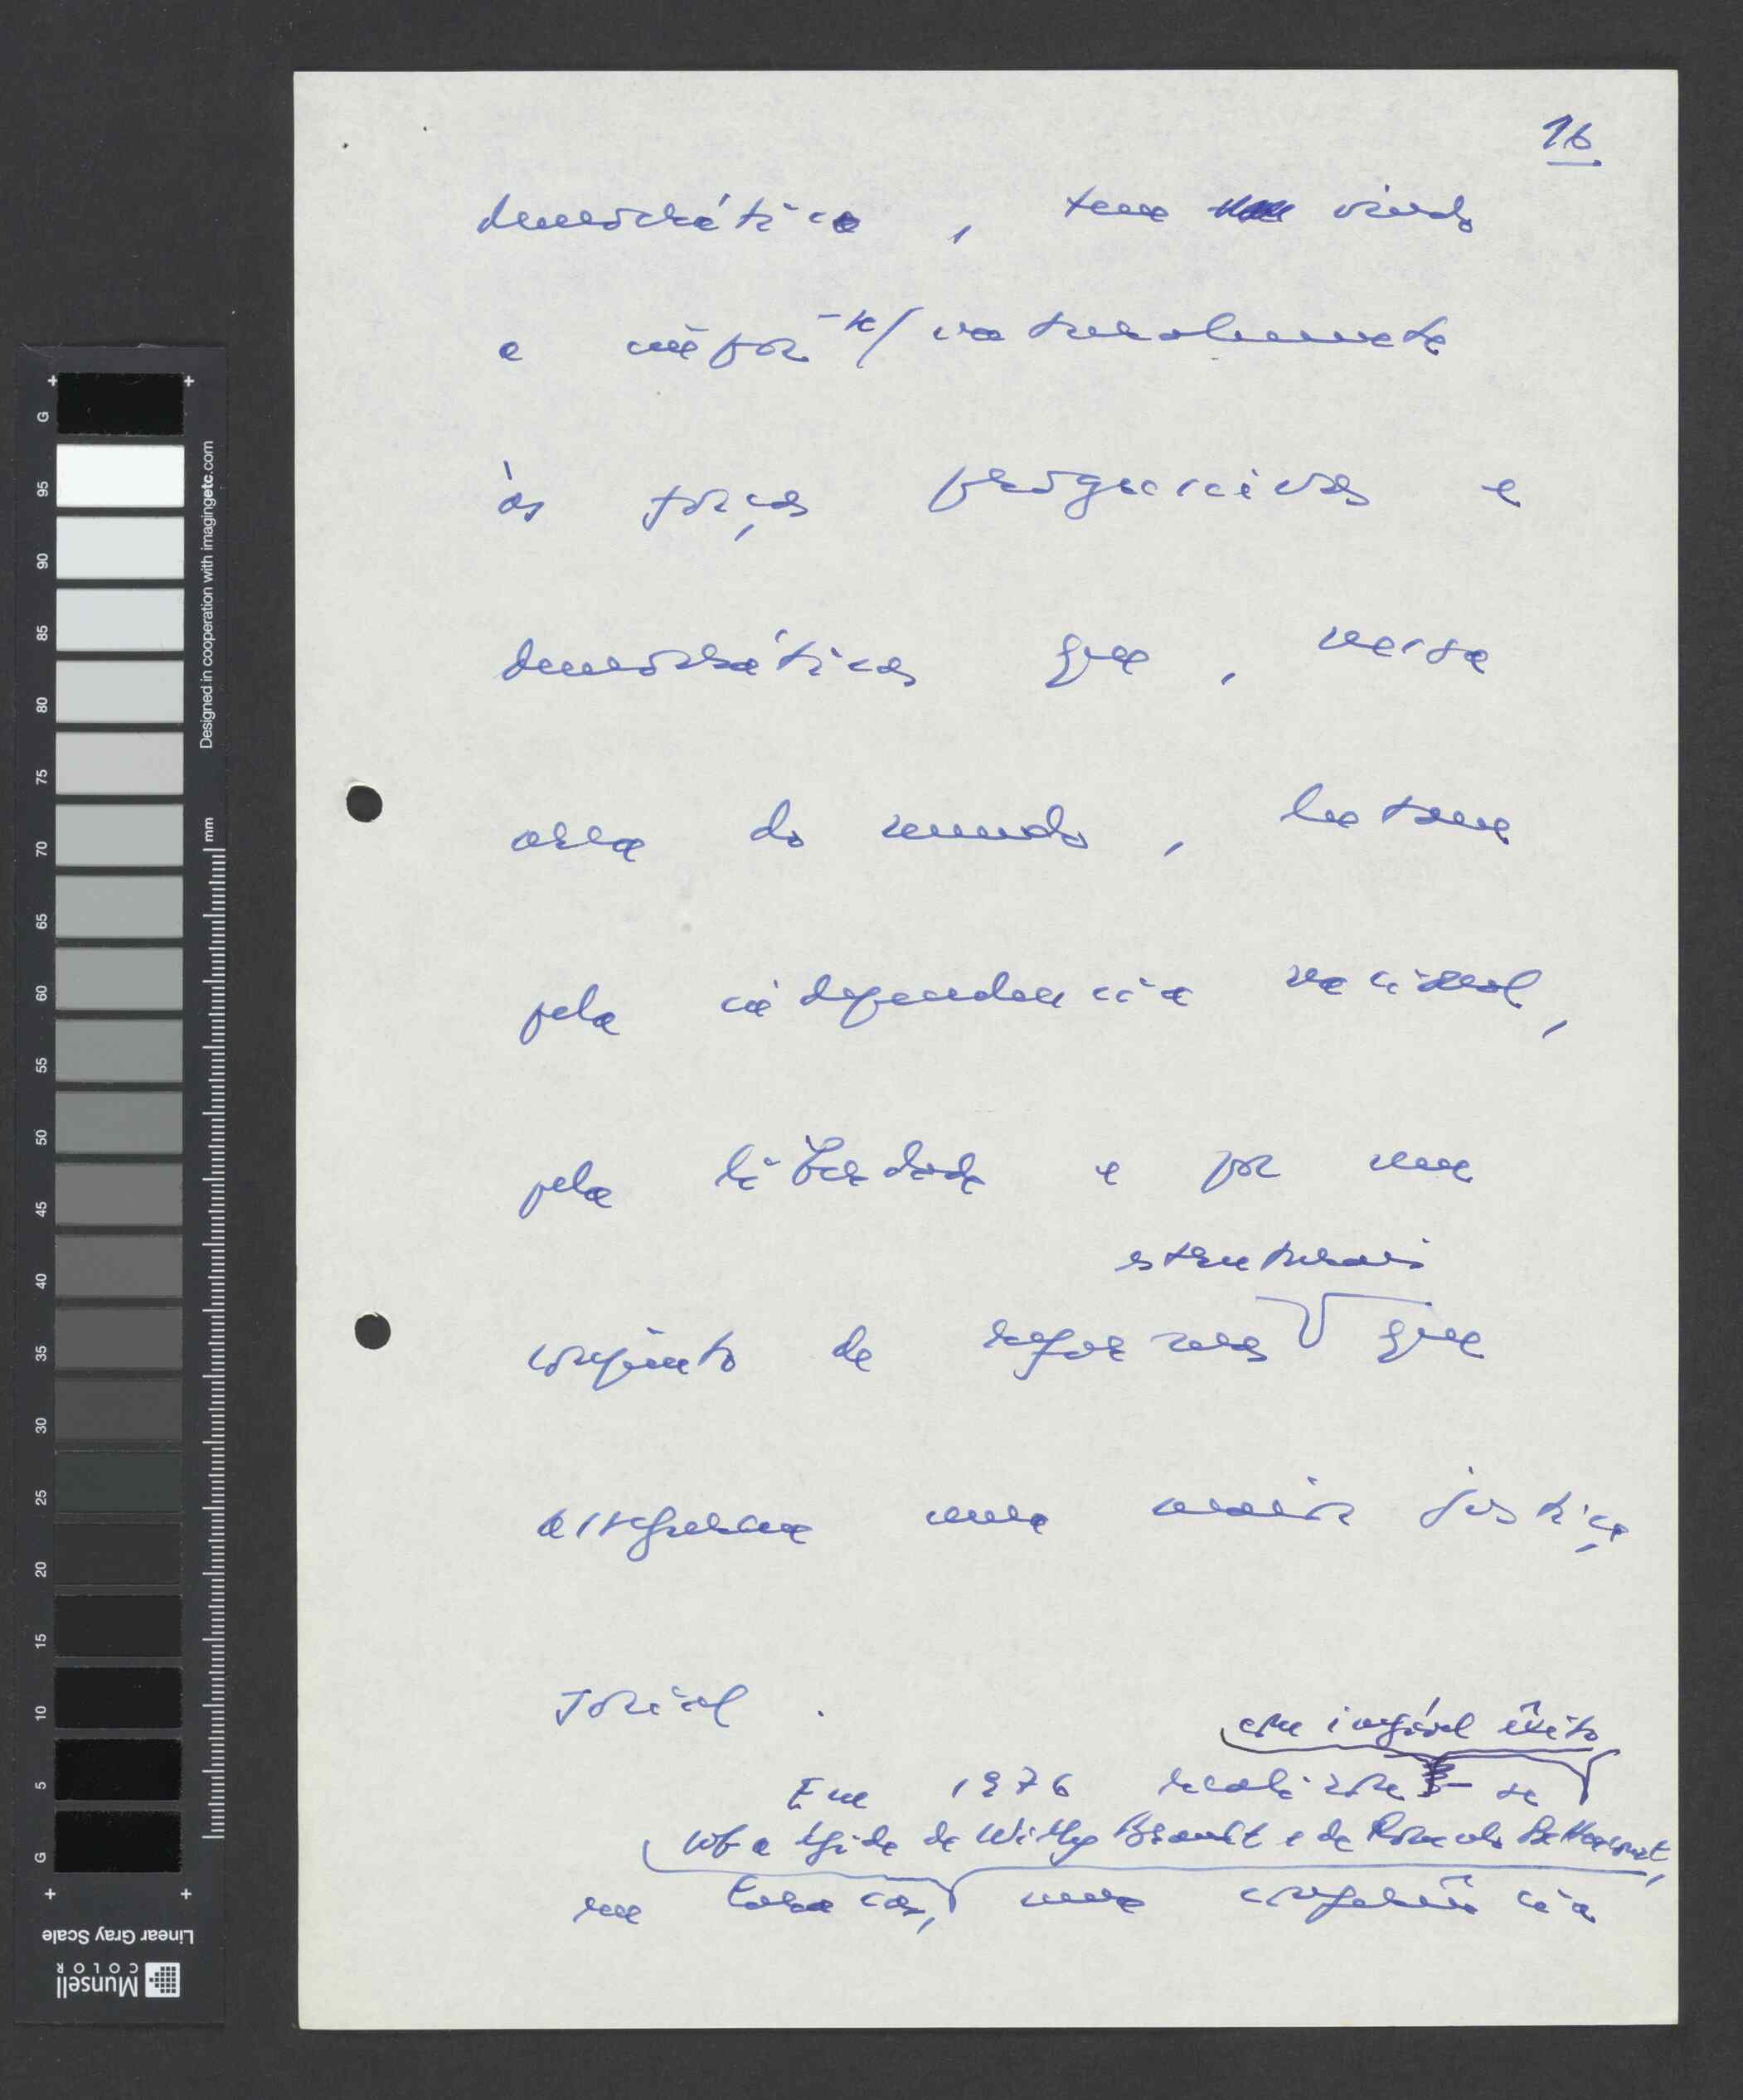 16
democrática, tem vindo
a impor-se/naturalmente
às forças progressivas e
democráticas que, nessa
área do mundo, lutam
pela independencia nacional,
pela liberdade e por um
estruturais
conjunto de reformas que
assegurem uma maior justiça
social.
com inegável êxito
Em 1976 realizou-se
sob a égide de Willy Brandt e de Romulo Bettencourt,
em Caracas, uma conferência
G
95
90
85
80
75
70
65
60
55
50
45
40
35
30
25
20
15
10
5
G
mm
Designed in cooperation with imagingetc.com
Linear Gray Scale
Munsell
COLOR